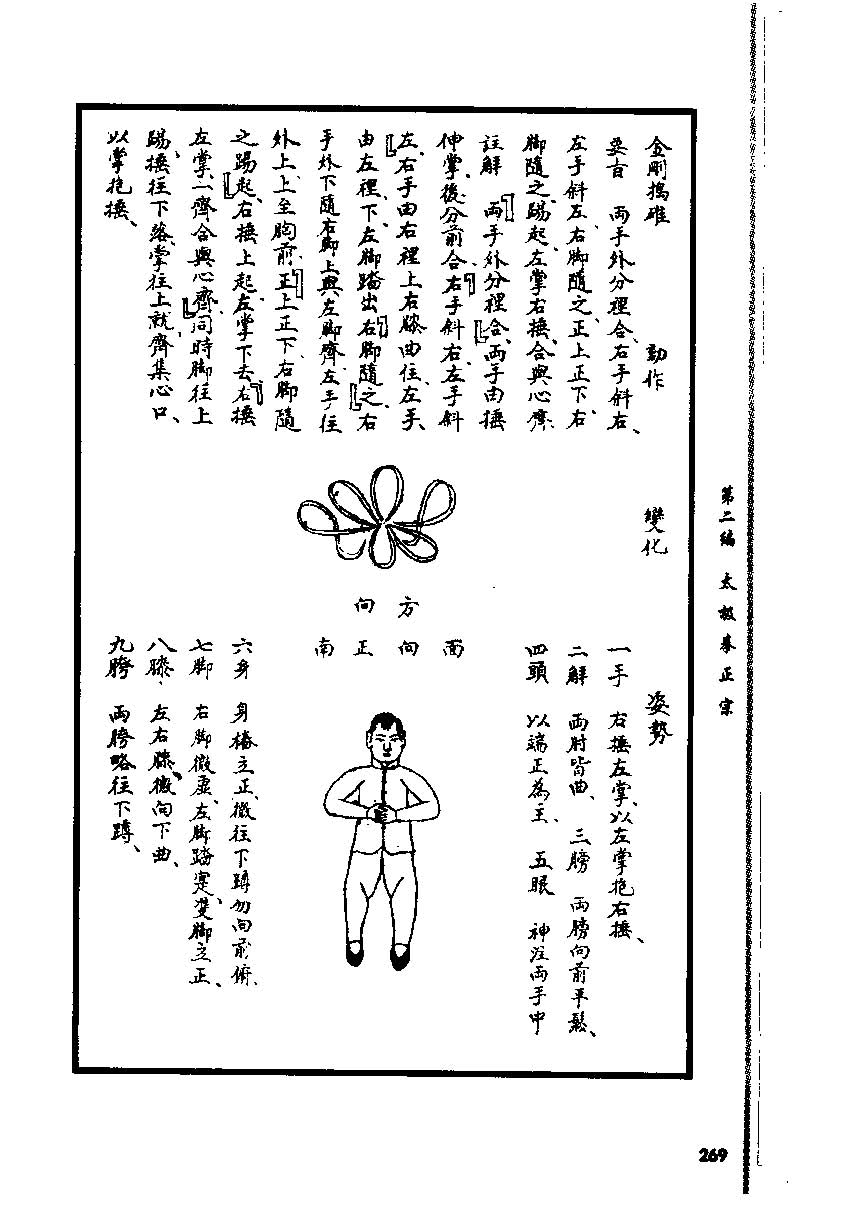 第二編 太極拳正宗
金剛搗碓 動作
要言 両手外分裡合、右手斜右、
左手斜左、右脚隨之、正上正下、右
脚隨之、踢起、左掌右捶、合與心齊、
註解 「両手外分裡合」、両手由捶
伸掌、後分前合、「右手斜右、左手斜
左」、右手由右裡上右膝曲住、左手、
由左裡、下、左脚踏出「右脚隨之」、右
手外下隨右脚上與左脚齊、左手往
外上、上至胸前、「正上正下、右脚隨
之踢起」、右捶上起、左掌下去「右捶
左掌、一齊合與心齊」、同時脚往上
踢、捶往下落、掌往上就、齊集心口、
以掌抱捶、
變化
方向
面向正南
姿勢
一手 右捶左掌、以左掌抱右捶、
二解 両肘皆曲、 三膀 両膀向前平鬆、
四頭 以端正為主、 五眼 神注両手中
六身 身樁立正、微往下蹲、勿向前俯、
七脚 右脚微虛、左脚踏寔、雙脚立正、
八膝、左右膝、微向下曲、
九胯 両胯略往下蹲、
269